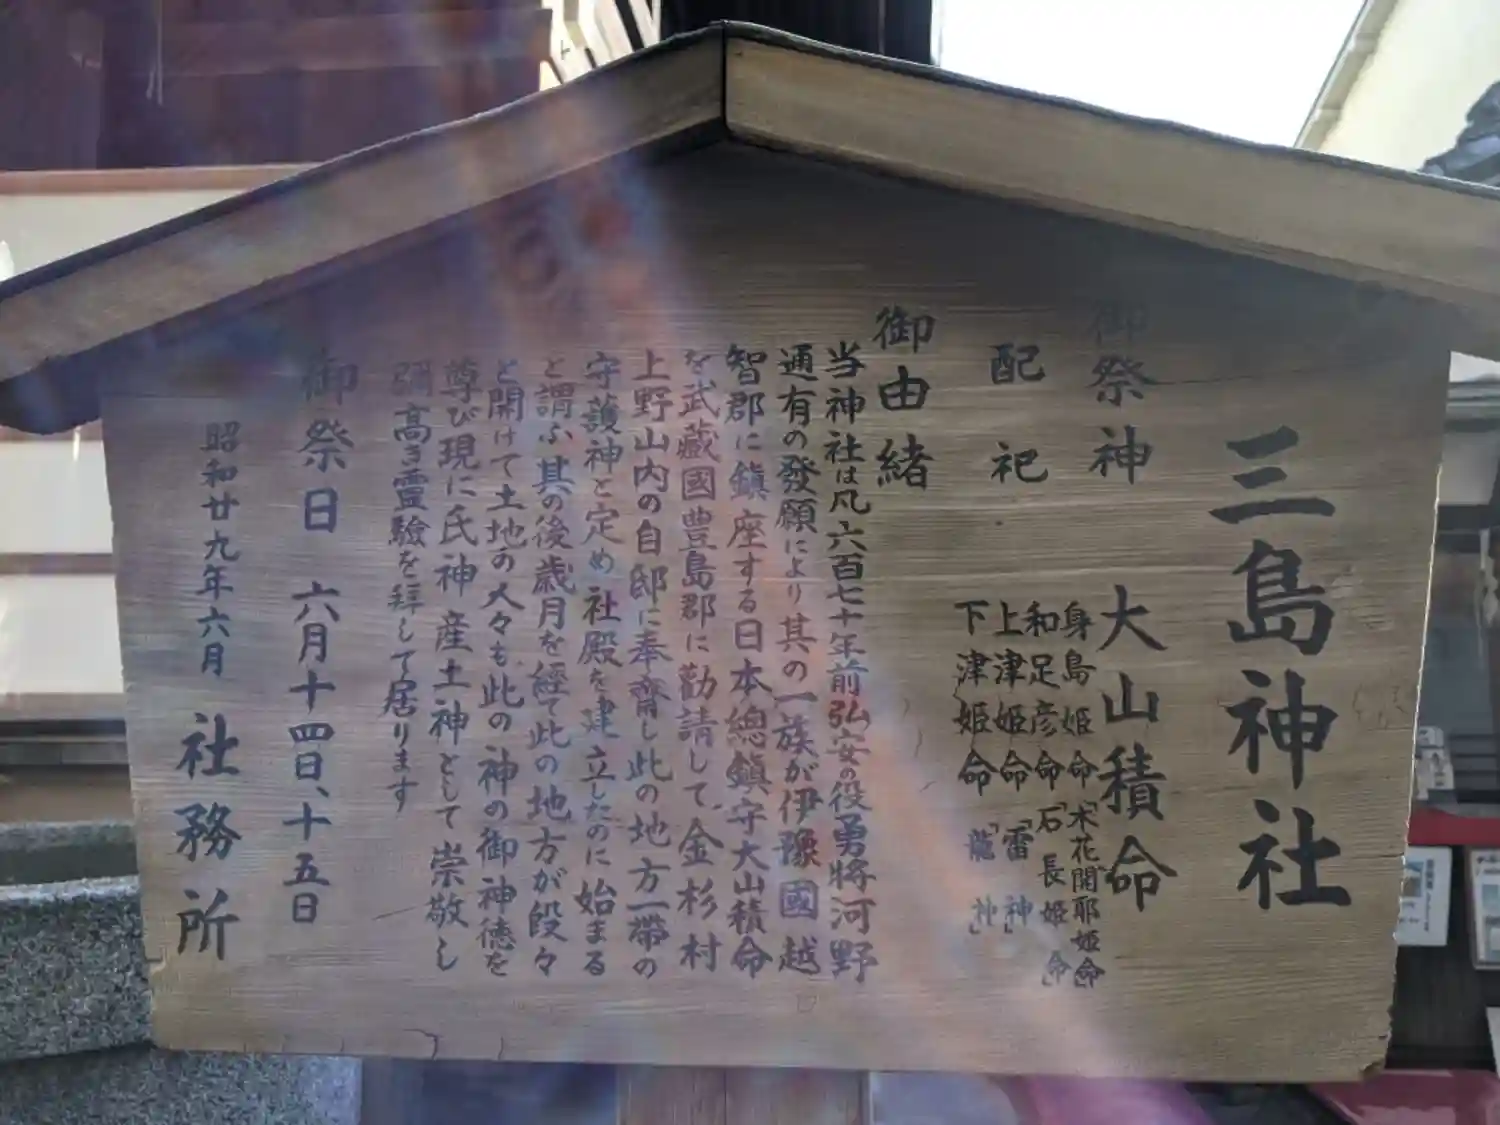 三島神社
御祭神 大山積命
配祀 身島姫命「木花開耶姫命」
和足彦命「石長姫命」
上津姫命「雷神」
下津姫命「龍神」
御由緒
当神社は凡六百七十年前弘安の役勇将河野
通有の發願により其の一族が伊豫國越
智郡に鎮座する日本總鎮守大山積命
を武蔵國豊島郡に勧請して、金杉村
上野山内の自邸に奉齋し此の地方一帯の
守護神と定め社殿を建立したのに始まる
と謂ふ其の後歳月を経て此の地方が段々
と開けて土地の人々も、此の神の御神徳を
尊び現に氏神産土神として崇敬し
弥高き霊驗を拝して居ります
御祭日 六月十四日、十五日
昭和廿九年六月 社務所